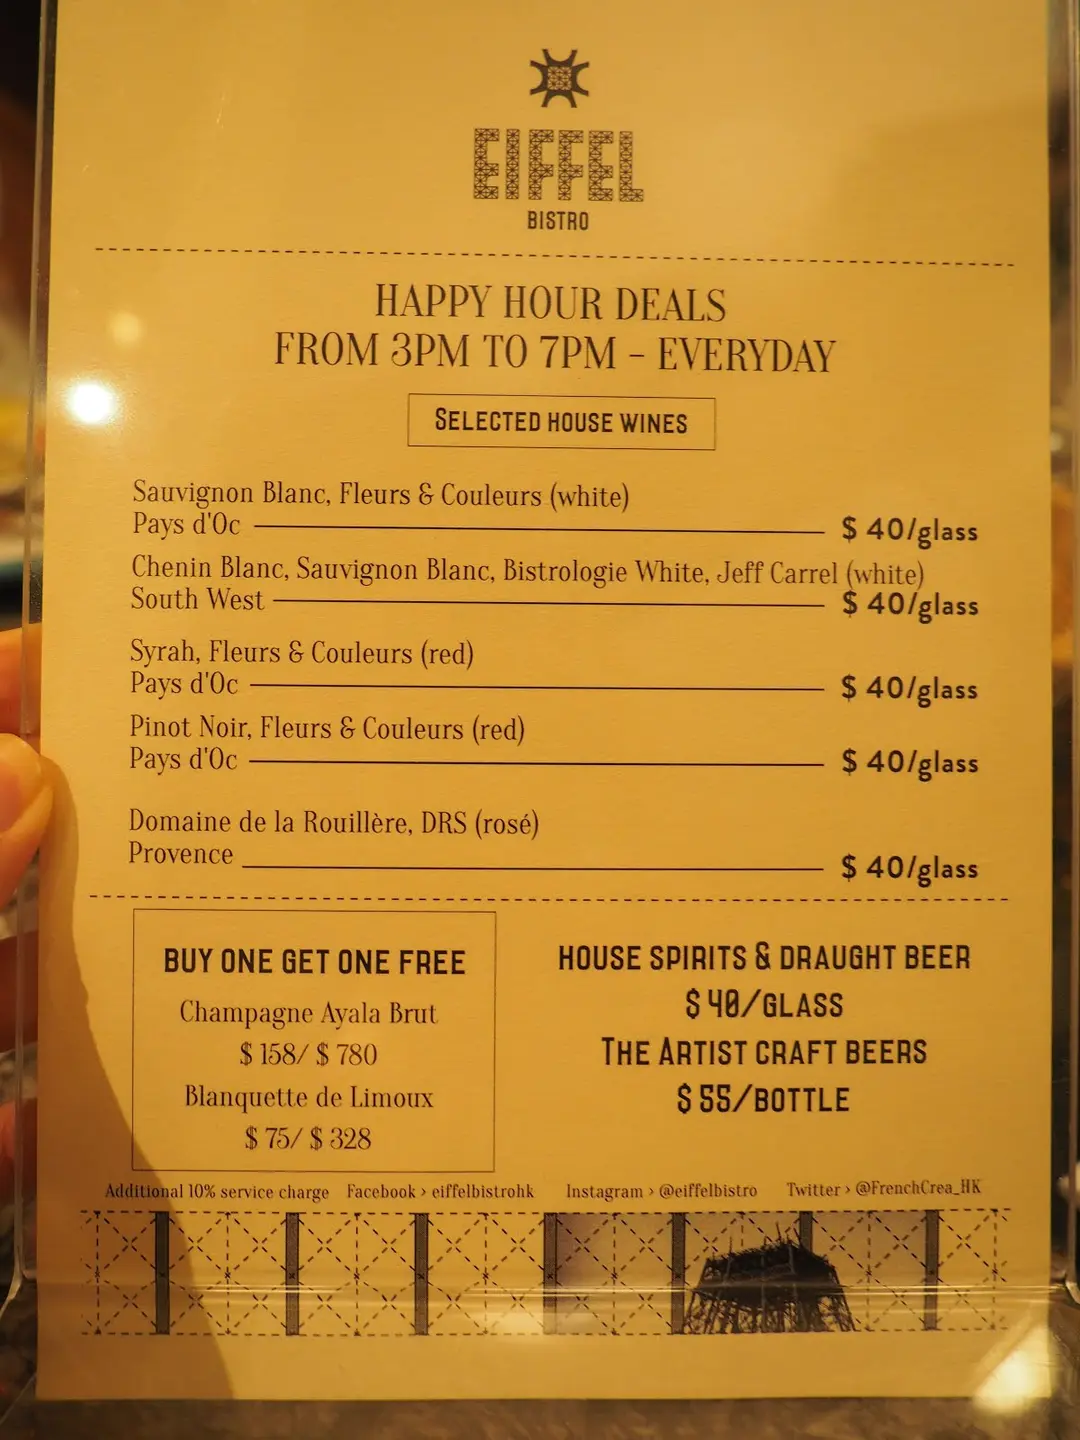 EIFFEL
BISTRO
HAPPY HOUR DEALS
FROM 3PM TO 7PM - EVERYDAY
SELECTED HOUSE WINES
Sauvignon Blanc, Fleurs & Couleurs (white)
Pays d'Oc $ 40/glass
Chenin Blanc, Sauvignon Blanc, Bistrologie White, Jeff Carrel (white)
South West $ 40/glass
Syrah, Fleurs & Couleurs (red)
Pays d'Oc $ 40/glass
Pinot Noir, Fleurs & Couleurs (red)
Pays d'Oc $ 40/glass
Domaine de la Rouillère, DRS (rosé)
Provence $ 40/glass
BUY ONE GET ONE FREE
Champagne Ayala Brut
$ 158/ $ 780
Blanquette de Limoux
$ 75/ $ 328
HOUSE SPIRITS & DRAUGHT BEER
$ 40/GLASS
THE ARTIST CRAFT BEERS
$ 55/BOTTLE
Additional 10% service charge Facebook > eiffelbistrohk Instagram > @eiffelbistro Twitter > @FrenchCrea_HK